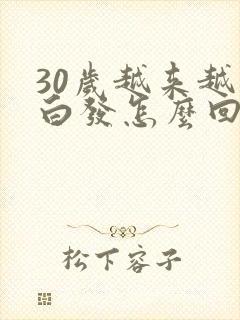 30歲越来越
白發怎麼回
松下容子